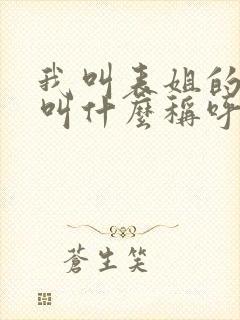 我叫表姐的
叫什麼稱呼
蒼生笑